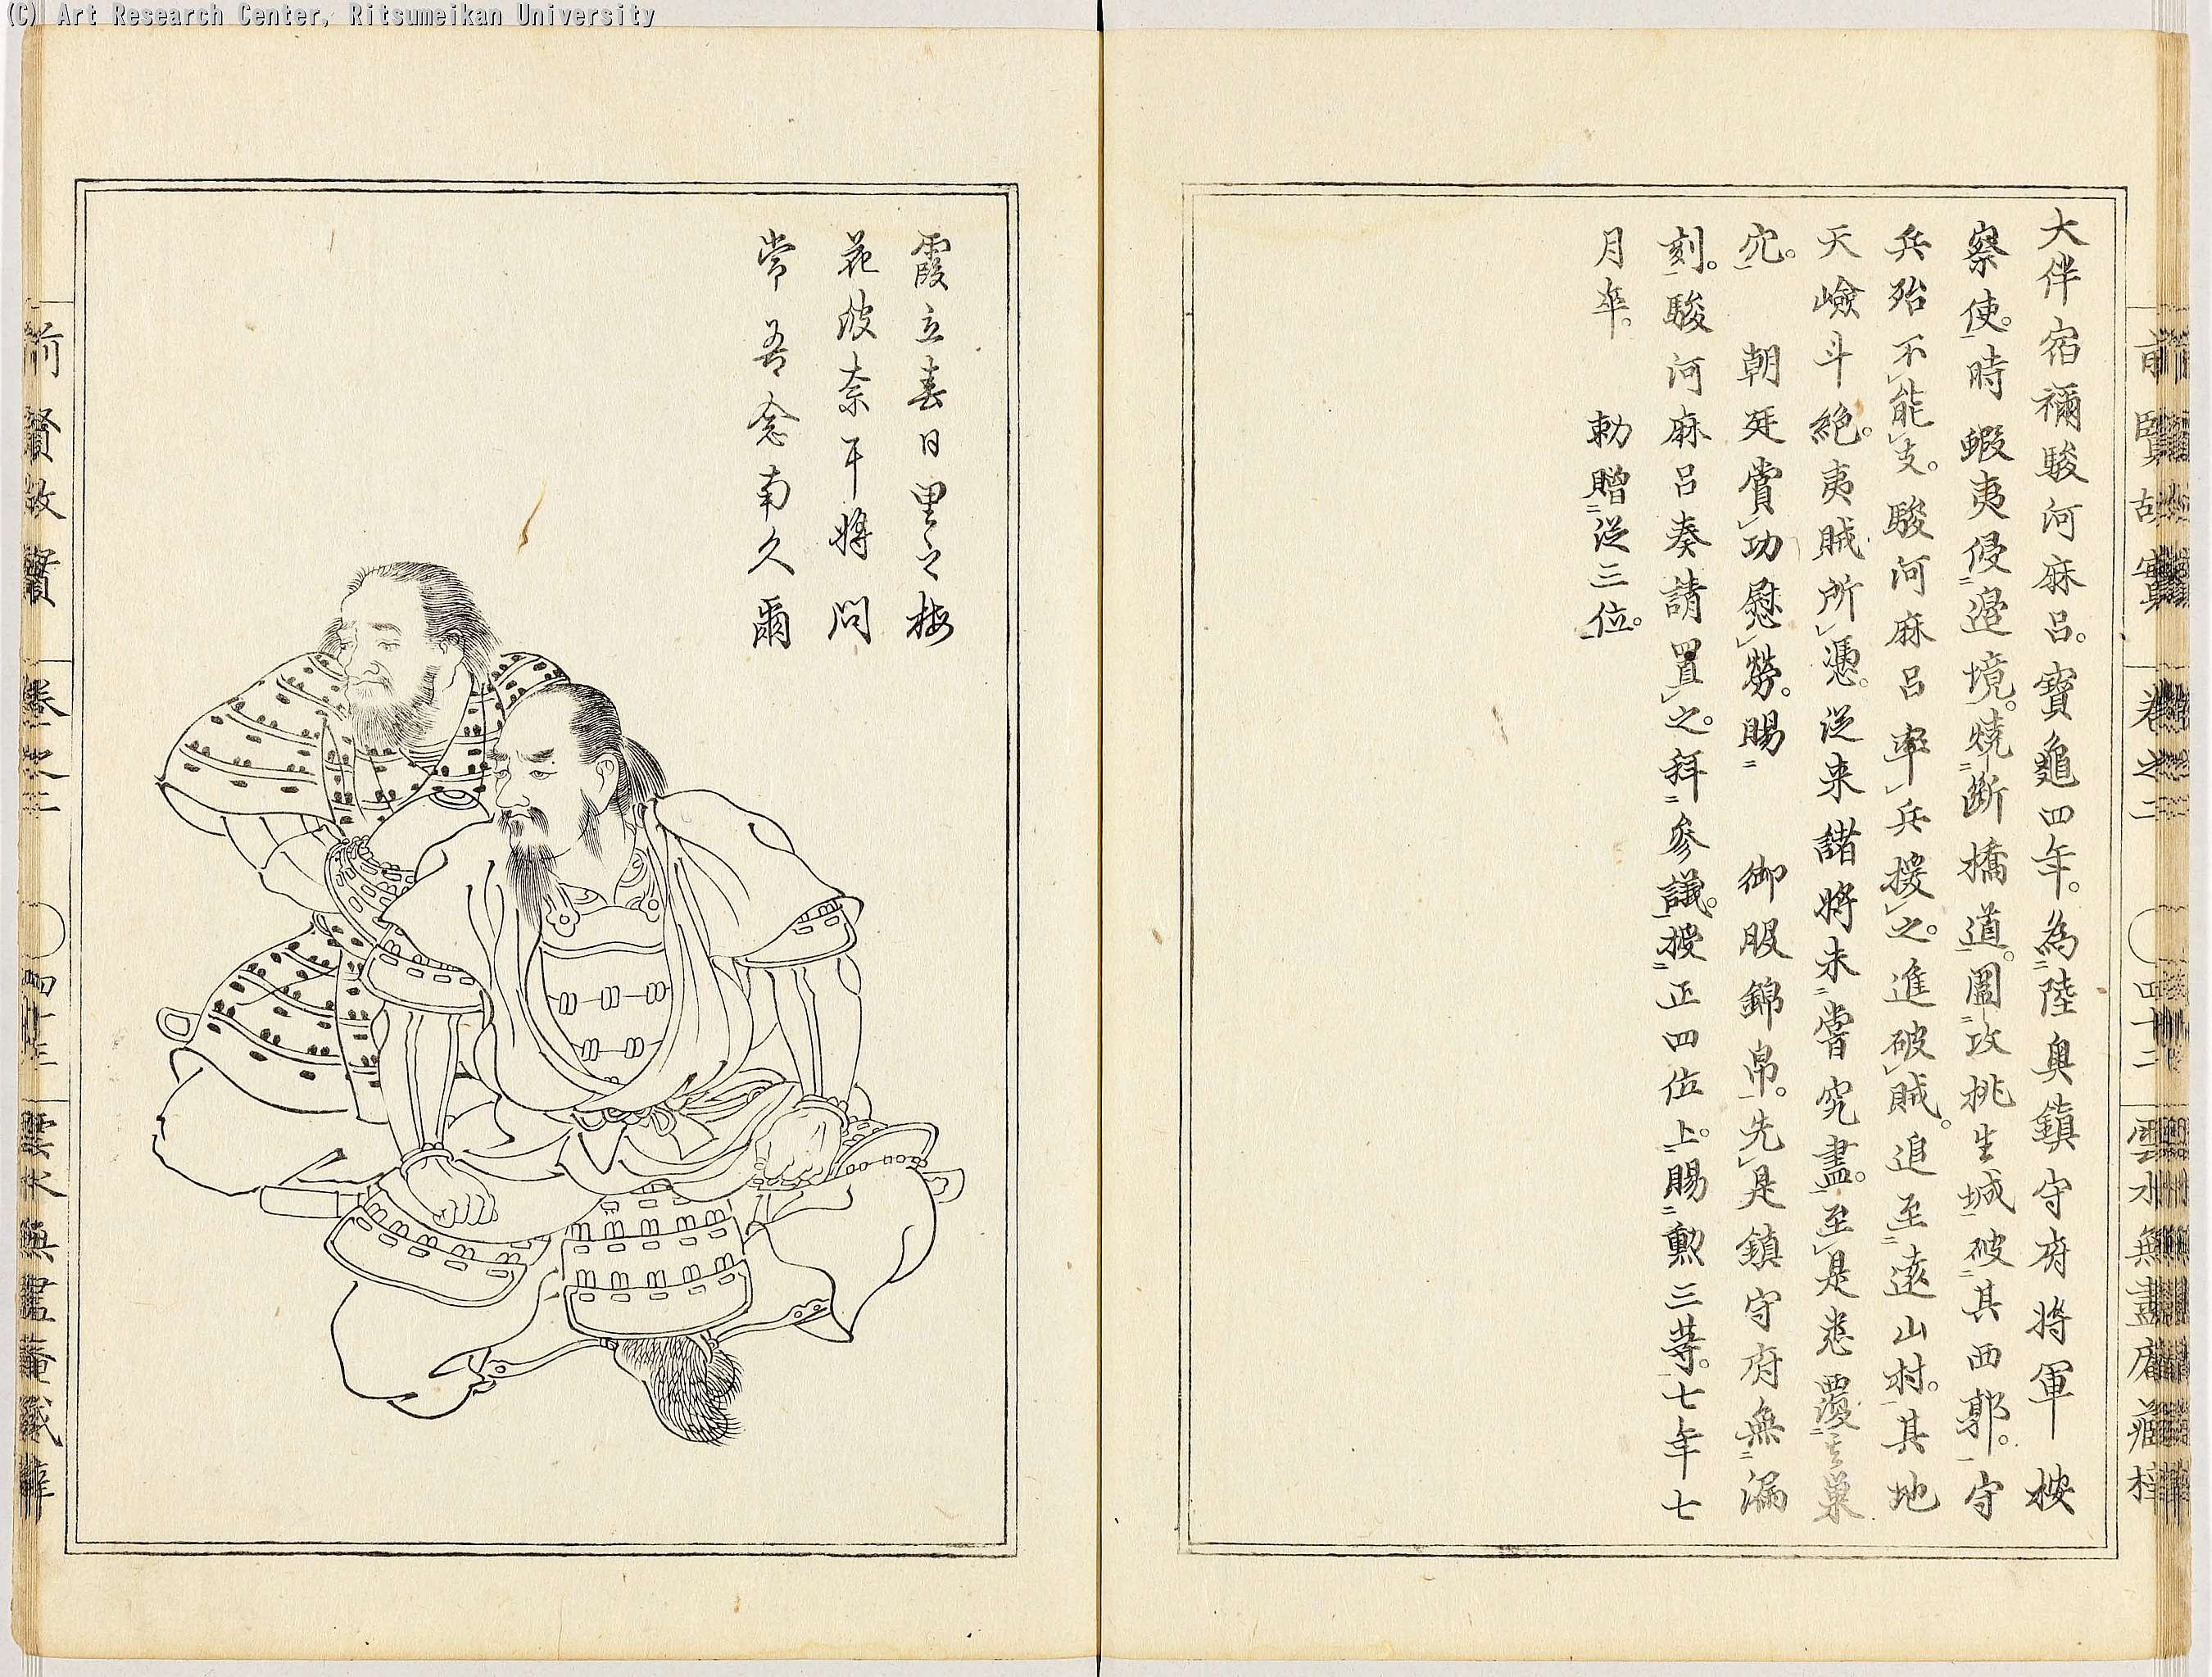 (C) Art Research Center, Ritsumeikan University
大伴宿禰駿河麻呂。寶龜四年。為陸奥鎮守府将軍按
察使。時蝦夷侵邊境。燒断橋道。圍攻桃生城。破其西郭。守
兵殆不能支。駿河麻呂率兵援之。進破賊。追至遠山村。其地
天嶮斗絶。夷賊所憑。従来諸将未嘗究盡。至是悉覆其巣
穴。朝廷賞功慰勞。賜御服錦帛。先是鎮守府無漏
刻。駿河麻呂奏請置之。拜参議。授正四位上。賜勲三等。七年七
月卒。勅贈従三位。
霞立春日里之梅
花波奈尓将問
常吾念南久爾
前賢故實
卷之二
四十二
雲水無盡庵藏梓